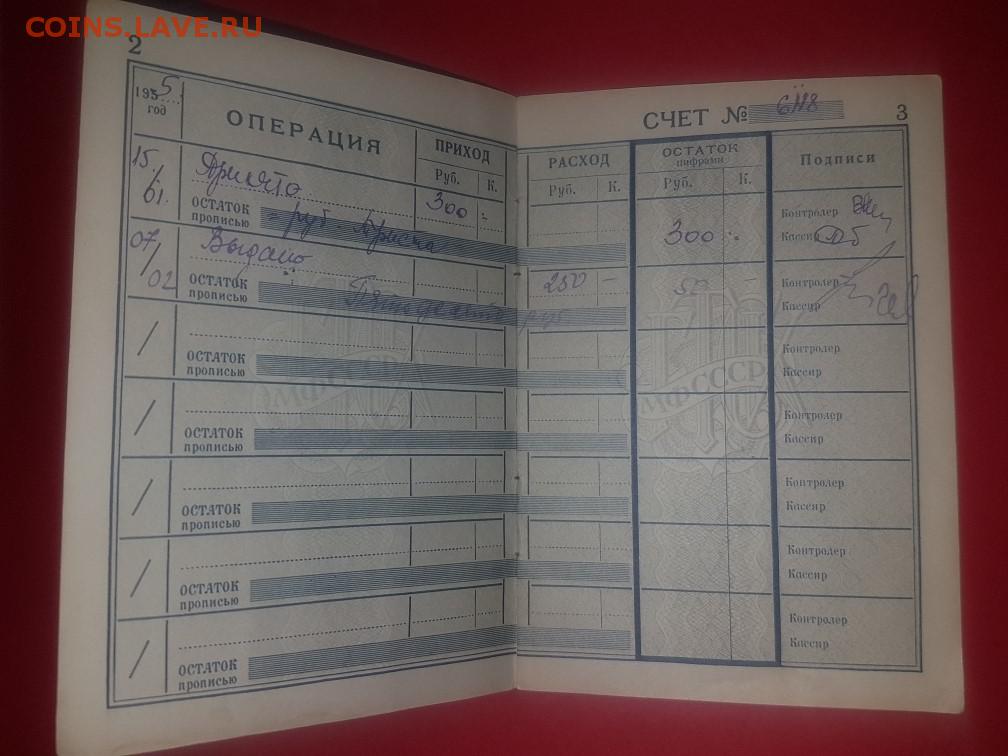 COINS.LAVE.RU
2
1955 год
ОПЕРАЦИЯ
ПРИХОД
Руб. К.
15/01. Принято 300 -
ОСТАТОК прописью = руб Триста
07/02 Выдано
ОСТАТОК прописью Пятьдесят руб
/
ОСТАТОК прописью
/
ОСТАТОК прописью
/
ОСТАТОК прописью
/
ОСТАТОК прописью
/
ОСТАТОК прописью
МФСССР
СЧЕТ №
3
РАСХОД
Руб. К.
ОСТАТОК
цифрами
Руб. К.
Подписи
300 -
Контролер
Кассир
250 - 50 -
Контролер
Кассир
Контролер
Кассир
Контролер
Кассир
Контролер
Кассир
Контролер
Кассир
Контролер
Кассир
МФСССР